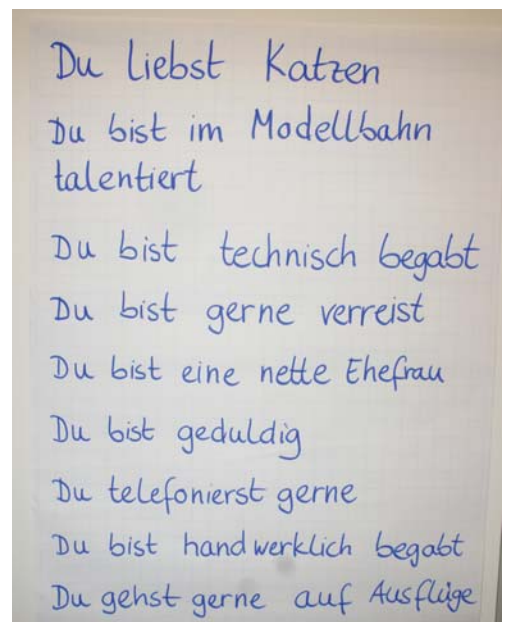 Du liebst Katzen
Du bist im Modellbahn
talentiert
Du bist technisch begabt
Du bist gerne verreist
Du bist eine nette Ehefrau
Du bist geduldig
Du telefonierst gerne
Du bist handwerklich begabt
Du gehst gerne auf Ausflüge